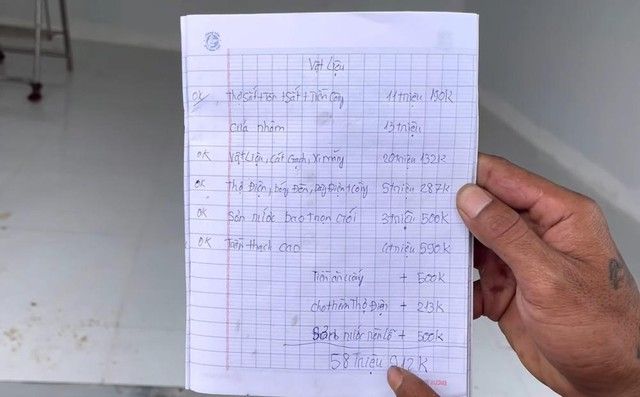 Vật Liệu
OK Thợ Sắt + Tôn + Sắt + Tiền Công 11 triệu 190K
Cửa nhôm 13 triệu
OK Vật Liệu, Cát, Gạch, Xi măng 20 triệu 132K
OK Thợ Điện, bóng Đèn, Dây Điện + Công 5 triệu 287K
OK Sơn nước bao trọn gói 3 triệu 500K
OK Trần thạch cao 4 triệu 590K
Tiền ăn uống + 500K
cho thêm Thợ Điện + 213K
nước nền + 500K
58 triệu 912K